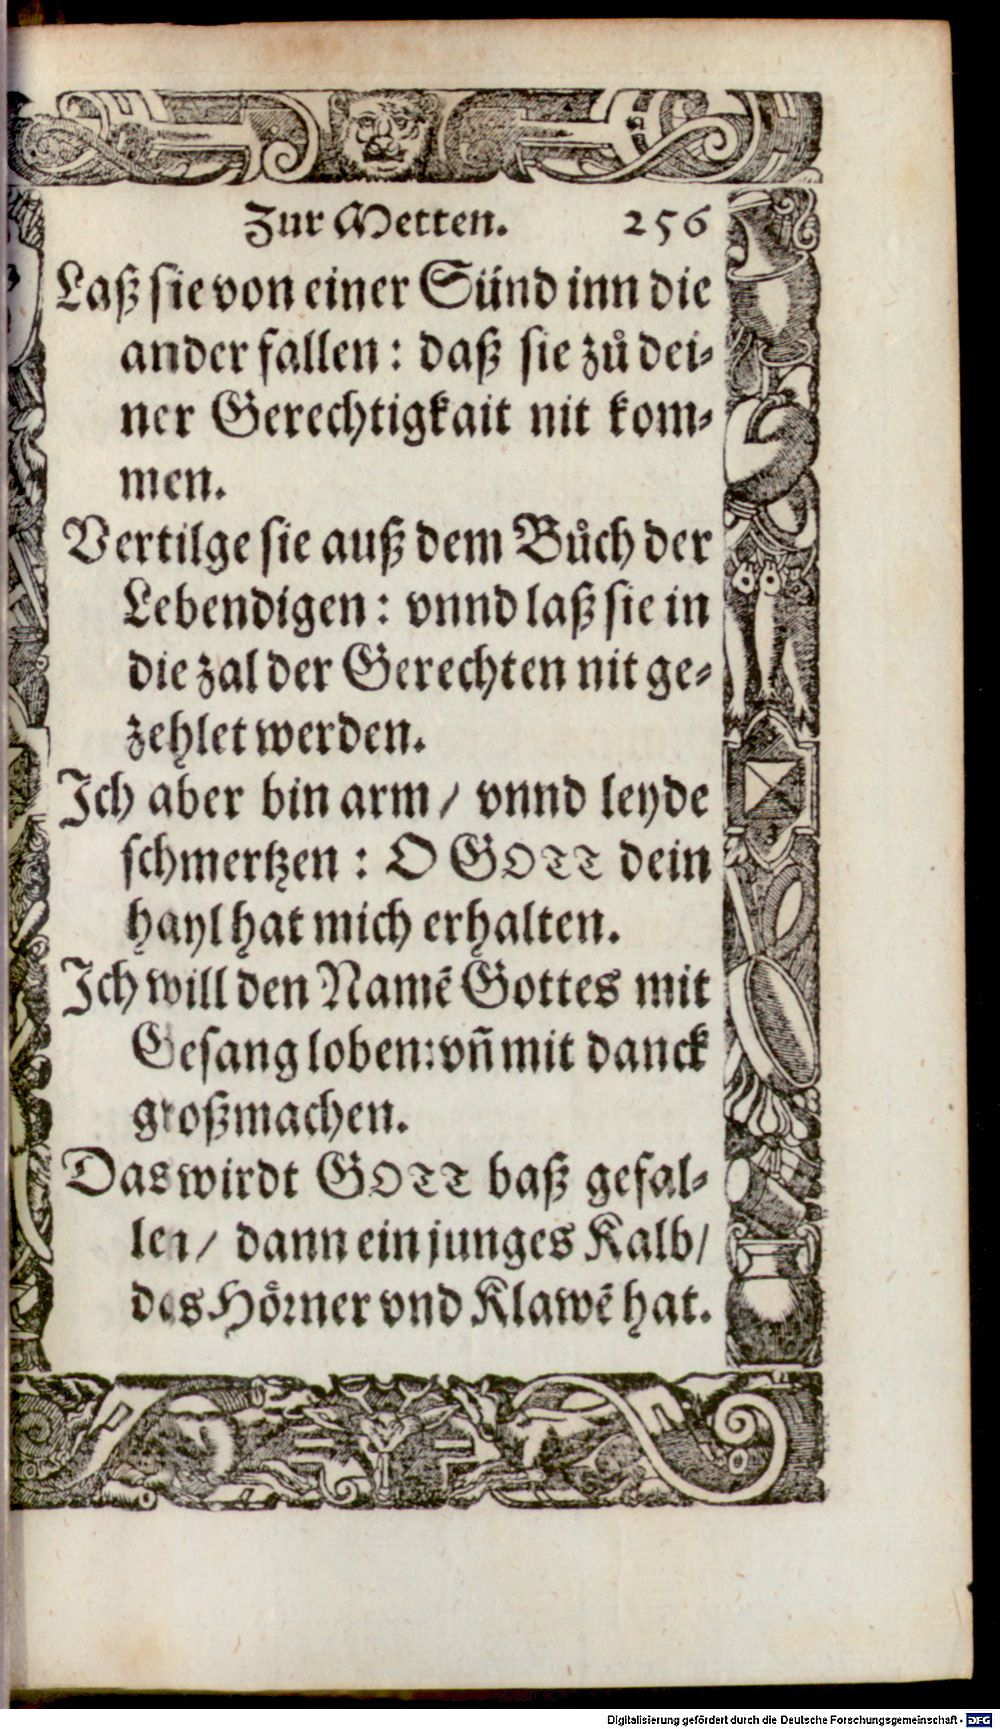 Zur Metten. 256
Laß sie von einer Sünd inn die
ander fallen : daß sie zů dei-
ner Gerechtigkait nit kom-
men.
Vertilge sie auß dem Bůch der
Lebendigen : vnnd laß sie in
die zal der Gerechten nit ge-
zehlet werden.
Ich aber bin arm / vnnd leyde
schmertzen : O GOTT dein
hayl hat mich erhalten.
Ich will den Namẽ Gottes mit
Gesang loben: vñ mit danck
großmachen.
Das wirdt GOTT baß gefal-
len / dann ein junges Kalb /
das Hörner vnd Klawẽ hat.
Digitalisierung gefördert durch die Deutsche Forschungsgemeinschaft - DFG